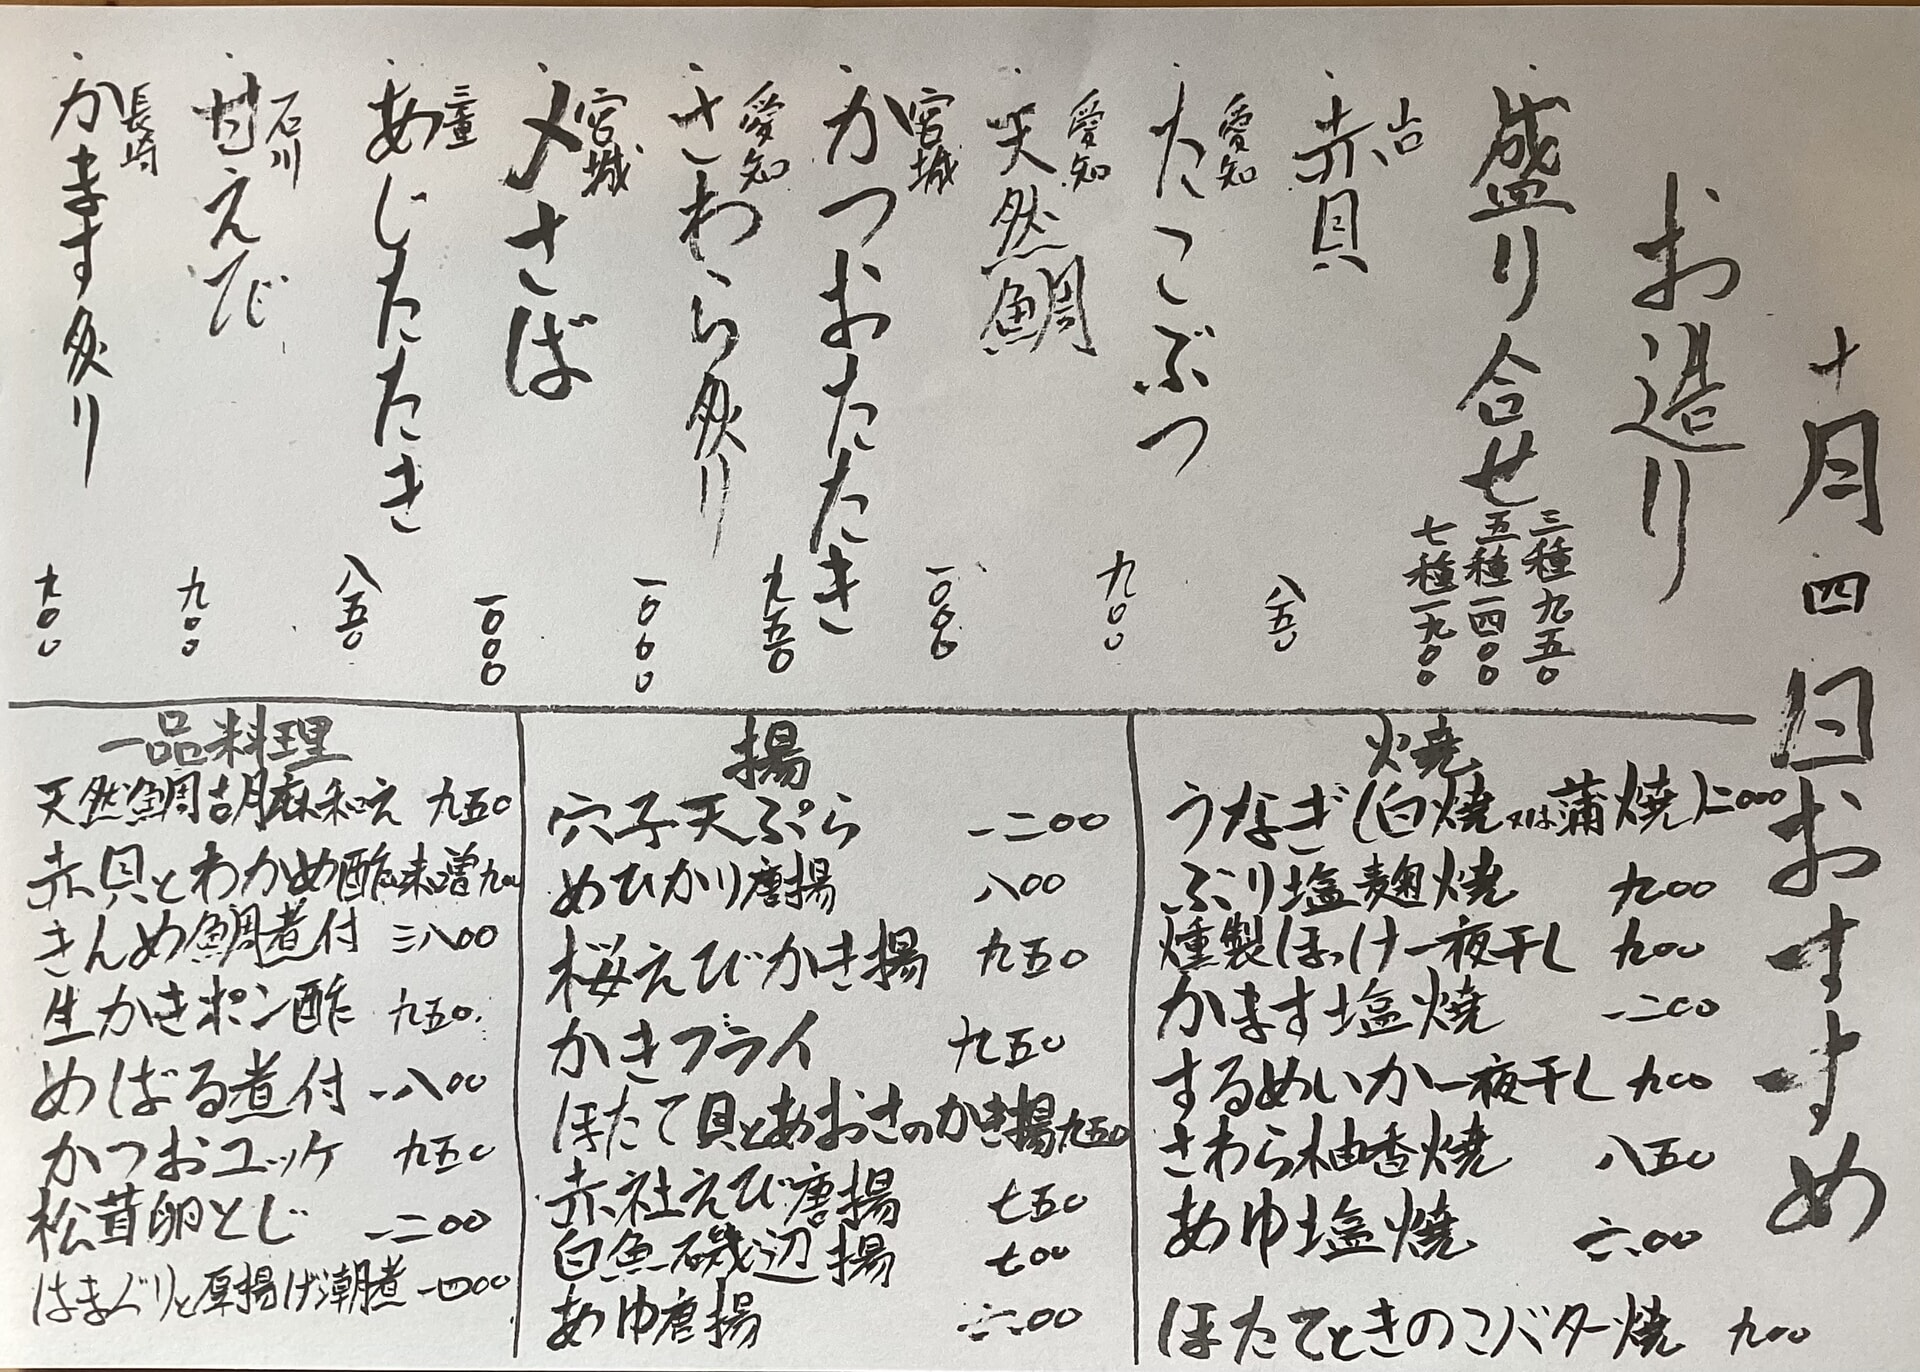 十月四日おすすめ
お造り
盛り合せ
三種九五〇
五種一四〇〇
七種一九〇〇
赤貝 八五〇
愛知
たこぶつ 九〇〇
愛知
天然鯛 一〇〇〇
宮城
かつおたたき 九五〇
愛知
さわら炙り 一〇〇〇
宮城
〆さば 一〇〇〇
三重
あじたたき 八五〇
石川
甘えび 九〇〇
長崎
かます炙り 九〇〇
焼
うなぎ(白焼又は蒲焼)二〇〇〇
ぶり塩麹焼 九〇〇
燻製ほっけ一夜干し 九〇〇
かます塩焼 一二〇〇
するめいか一夜干し 九〇〇
さわら柚香焼 八五〇
あゆ塩焼 六〇〇
ほたてときのこバター焼 九〇〇
揚
穴子天ぷら 一二〇〇
めひかり唐揚 八〇〇
桜えびかき揚 九五〇
かきフライ 九五〇
ほたて貝とあおさのかき揚九五〇
赤社えび唐揚 七五〇
白魚磯辺揚 七〇〇
あゆ唐揚 六〇〇
一品料理
天然鯛胡麻和え 九五〇
赤貝とわかめ酢味噌九〇〇
きんめ鯛煮付 三八〇〇
生かきポン酢 九五〇
めばる煮付 一八〇〇
かつおユッケ 九五〇
松茸卵とじ 一二〇〇
はまぐりと厚揚げ潮煮 一四〇〇